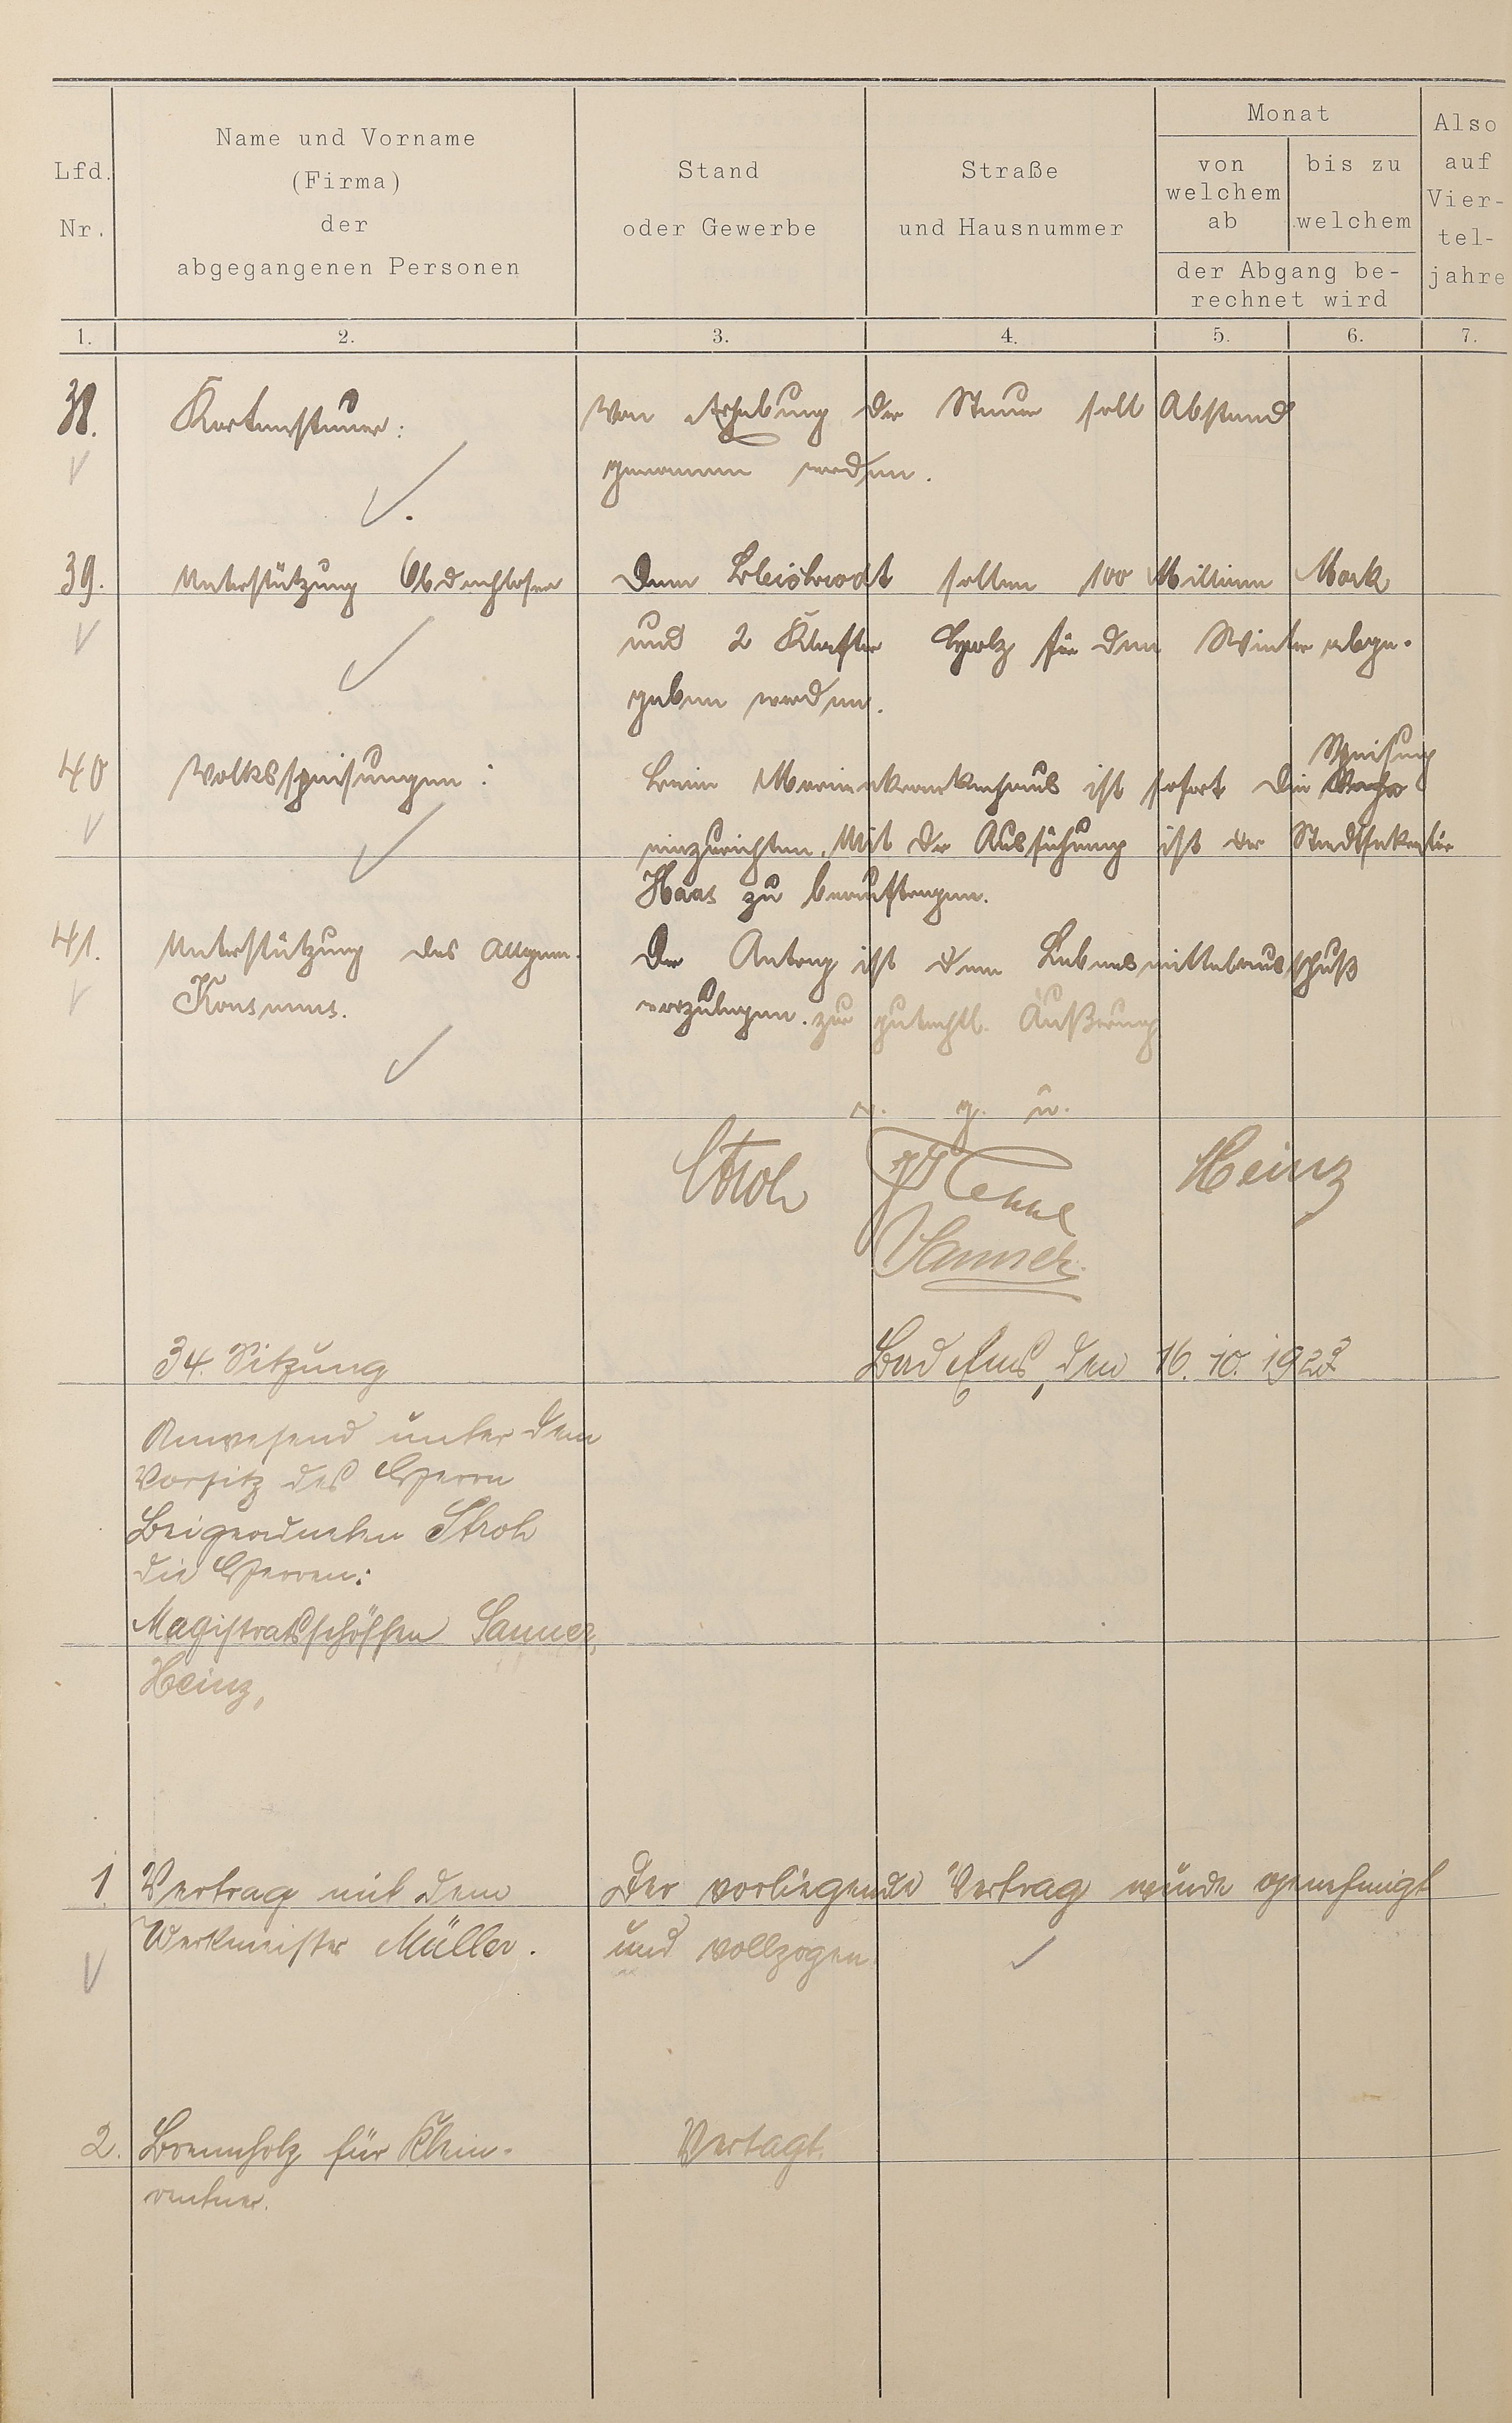 Lfd. Nr.
Name und Vorname
(Firma)
der
abgegangenen Personen
Stand
oder Gewerbe
Straße
und Hausnummer
Monat
von welchem ab
bis zu welchem
der Abgang be-
rechnet wird
Also auf Vier-
tel-
jahre
1. 2. 3. 4. 5. 6. 7.
38. Kartensteuer: Von Erhebung der Steuer soll Abstand
genommen werden.
39. Unterstützung Obdachloser Dem sollen 100 Millionen Mark
und 2 Klafter Holz für den Winter abge-
geben werden.
Speisung
40 Volksspeisungen: Beim Marienkrankenhaus ist sofort die
einzurichten. Mit der Ausführung ist der Stadtsekretär
Haas zu beauftragen.
41. Unterstützung des Allgem. Der Antrag ist dem Lebensmittelausschuß
Konsums. vorzulegen. zur gutachtl. Äußerung
v. g. u.
Stroh Heinz
Sanner
34. Sitzung Bad Ems, den 16. 10. 1923
Anwesend unter dem
Vorsitz des Herrn
Beigeordneten Stroh
die Herren:
Magistratsschöffen Sanner,
Heinz,
1. Vertrag mit dem Der vorliegende Vertrag wurde genehmigt
Werkmeister Müller. und vollzogen.
2. Brennholz für Klein- Vertagt.
rentner.